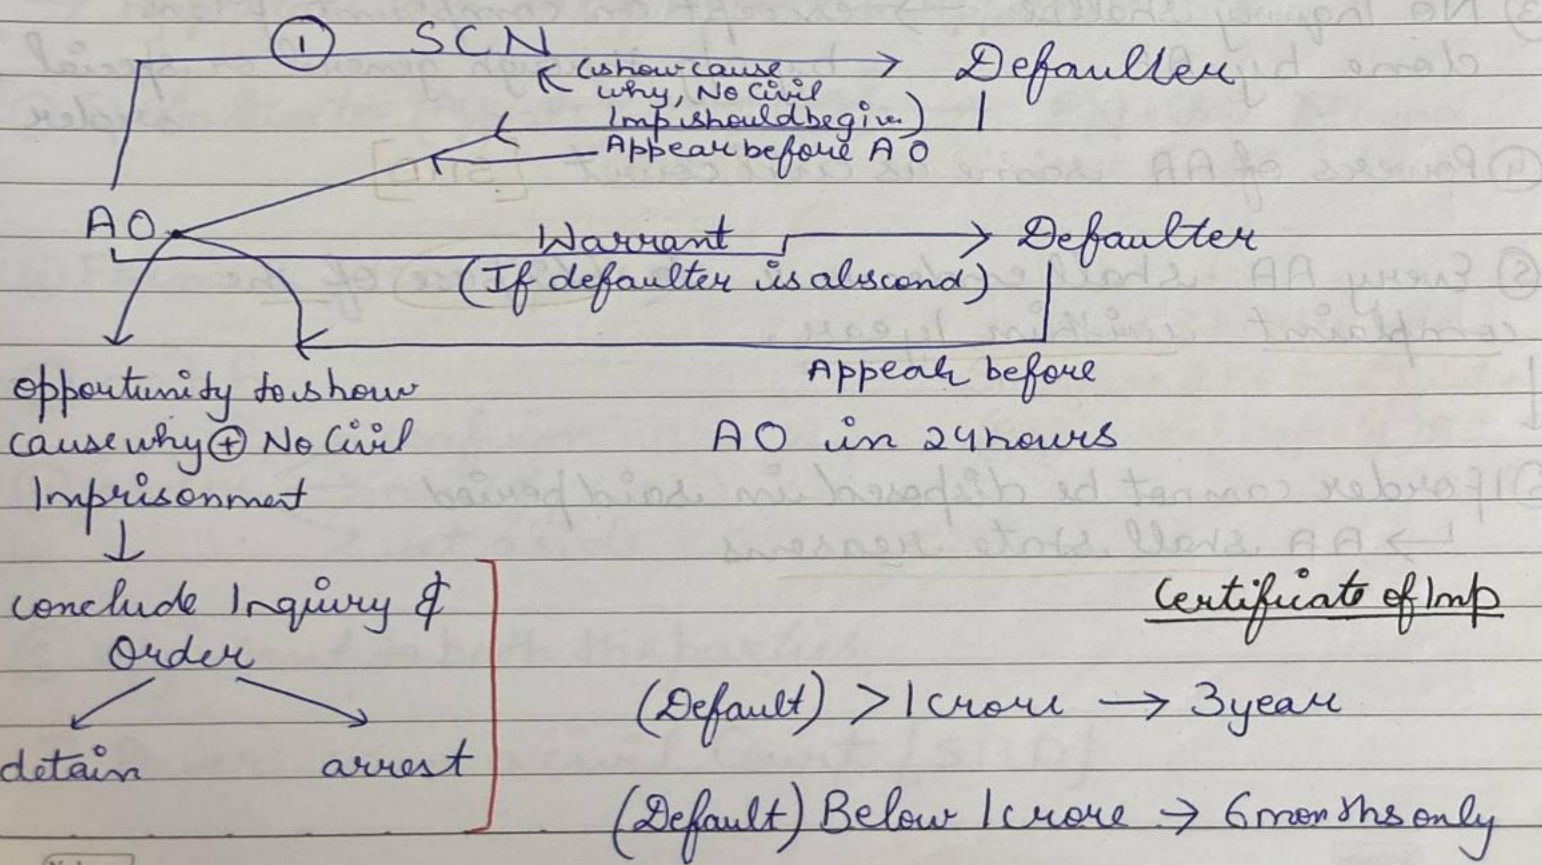 ① SCN
Defaulter
(show cause
why, No Civil
Imp should be given)
Appear before AO
AO
Warrant
Defaulter
(If defaulter is abscond)
Appear before
AO in 24 hours
opportunity to show
cause why ⊕ No Civil
Imprisonment
↓
conclude Inquiry &
Order
detain arrest
Certificate of Imp
(Default) > 1 crore → 3 year
(Default) Below 1 crore → 6 months only